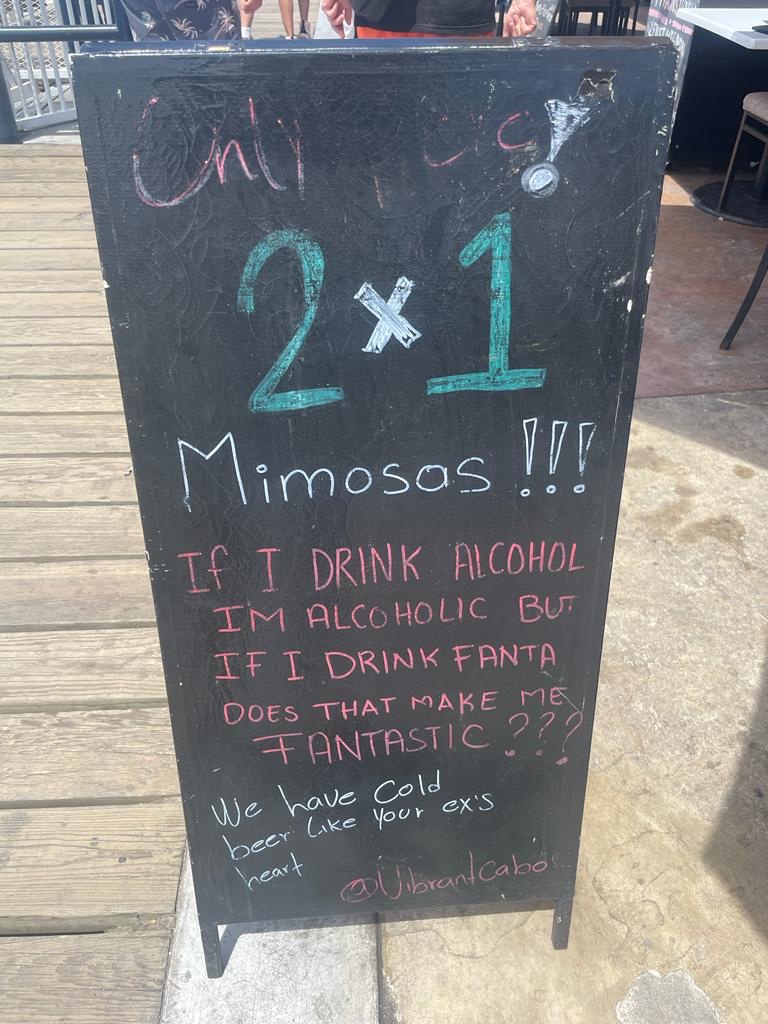 Only
2 x 1
Mimosas !!!
If I DRINK ALCOHOL
IM ALCOHOLIC BUT
IF I DRINK FANTA
DOES THAT MAKE ME
FANTASTIC ???
We have cold
beer like your ex's
heart
@Vibrantcabo